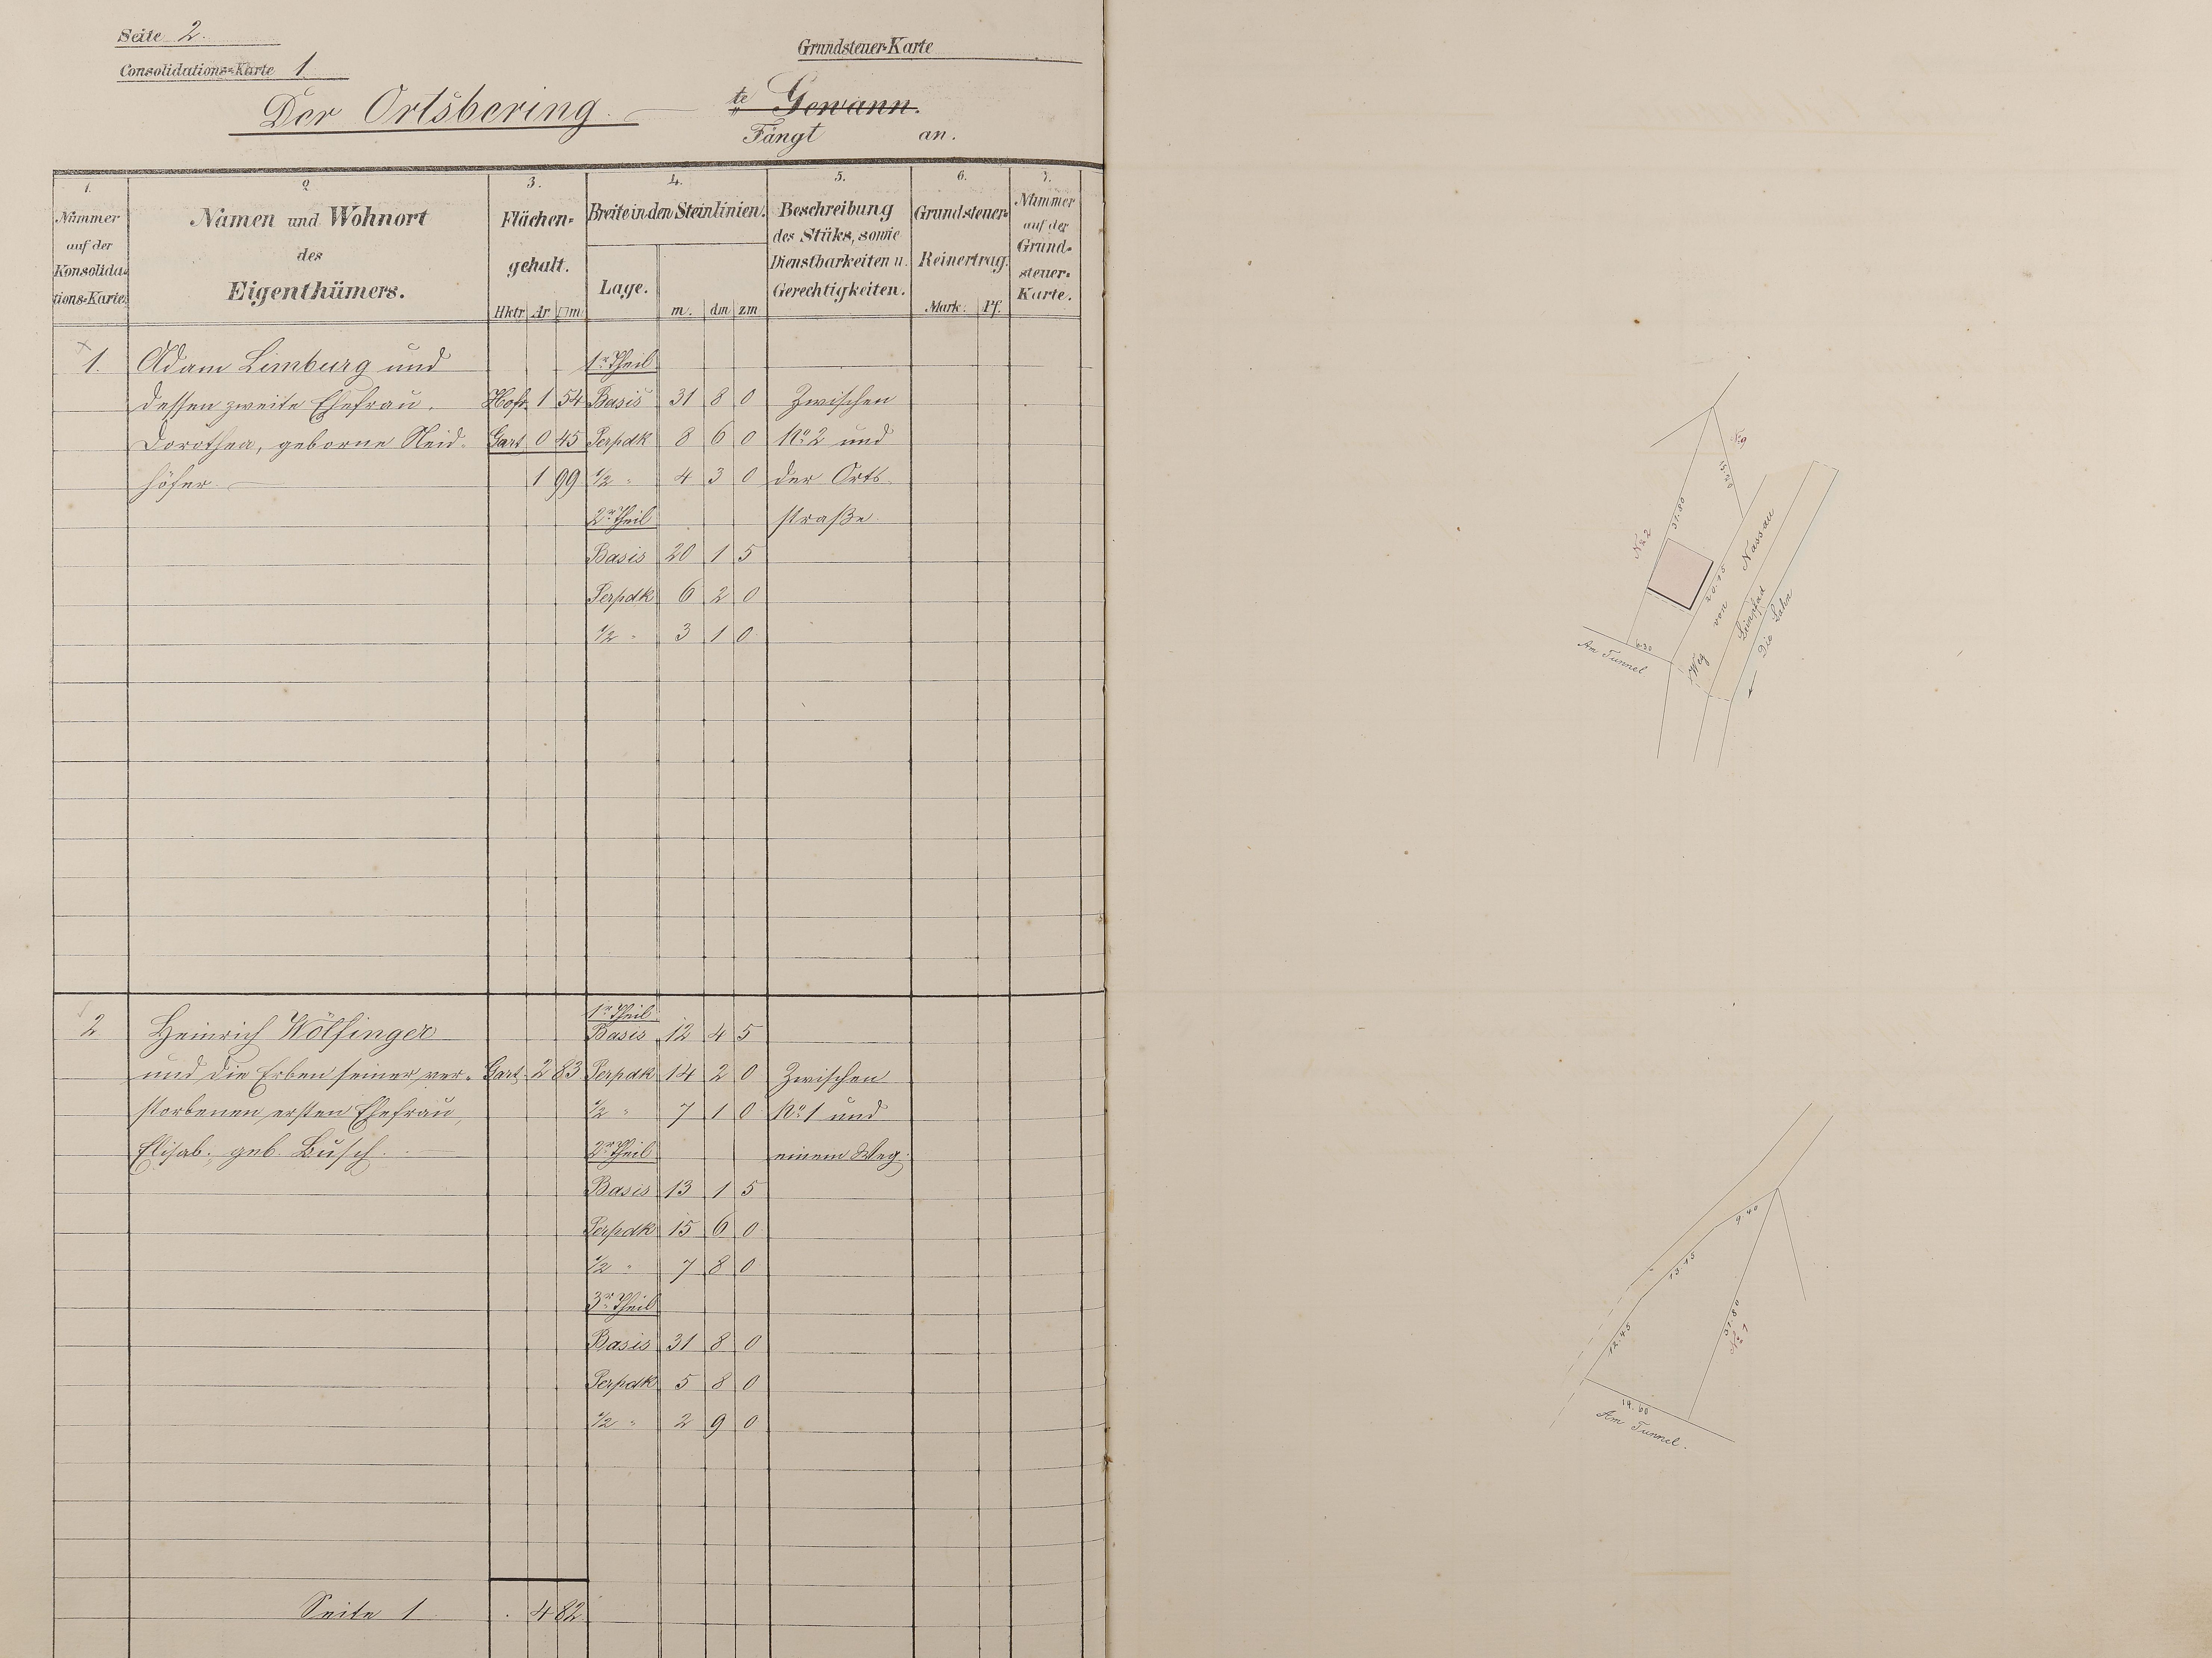 Seite 2.
Consolidations=Karte 1
Grundsteuer-Karte
Der Ortsbering. te Gewann.
Fängt an.
1. 2 3. 4. 5. 6. 7.
Nummer auf der Konsolida=tions=Karte.
Namen und Wohnort
des
Eigenthümers.
Flächen=
gehalt.
Hktr Ar □m
Breite in den Steinlinien.
Lage. m. dm zm
Beschreibung
des Stüks, sowie
Dienstbarkeiten u.
Gerechtigkeiten.
Grundsteuer=
Reinertrag.
Mark. Pf.
Nummer
auf der
Grund=
steuer=
Karte.
1. Adam Limburg und 1r Theil
dessen zweite Ehefrau, Hofr. 1 54 Basis 31 8 0 Zwischen
Dorothea, geborne Neid= Gart 0 45 Perpdk 8 6 0 No 2 und
höfer. 1 99 1/2 " 4 3 0 der Orts=
2r Theil straße.
Basis 20 1 5
Perpdk 6 2 0
1/2 " 3 1 0
1r Theil
2 Heinrich Wölfinger Basis 12 4 5
und die Erben seiner ver= Gart. 2 83 Perpdk 14 2 0 Zwischen
storbenen ersten Ehefrau, 1/2 " 7 1 0 No 1 und
Elisab. geb. Busch. 2r Theil einem Weg.
Basis 13 1 5
Perpdk 15 6 0
1/2 " 7 8 0
3r Theil
Basis 31 8 0
Perpdk 5 8 0
1/2 " 2 9 0
Seite 1 . 4 82
No 9
31.80
No 2
20.15
Weg von Nassau
Leinpfad
Die Lahn
Am Tunnel
9.40
13.15
12.45
31.80
No 1
19.60
Am Tunnel.